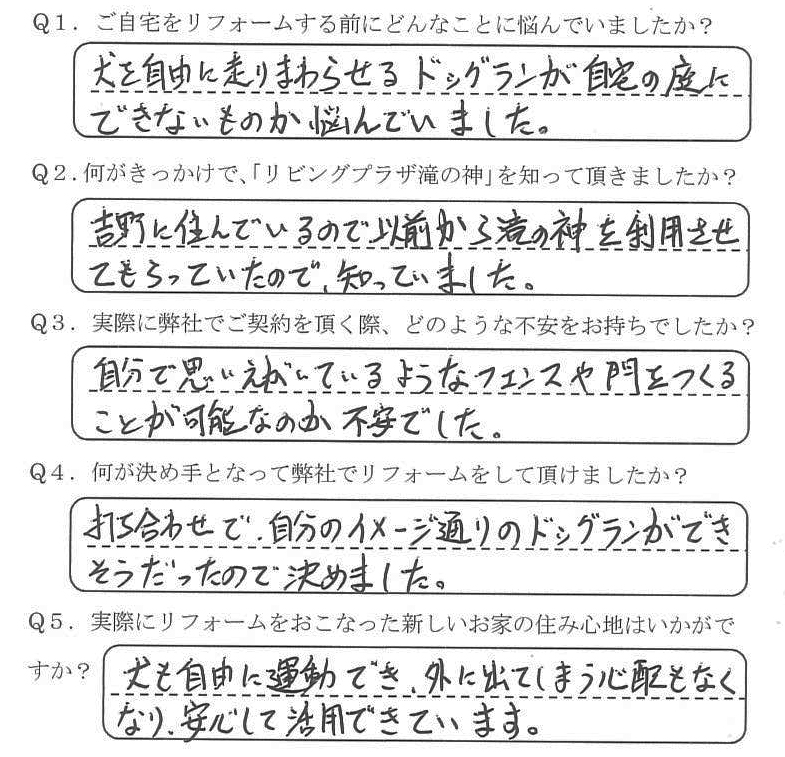 Q1．ご自宅をリフォームする前にどんなことに悩んでいましたか？
犬を自由に走りまわらせるドッグランが自宅の庭に
できないものか悩んでいました。
Q2．何がきっかけで、「リビングプラザ滝の神」を知って頂きましたか？
吉野に住んでいるので以前から滝の神を利用させ
てもらっていたので、知っていました。
Q3．実際に弊社でご契約を頂く際、どのような不安をお持ちでしたか？
自分で思いえがいているようなフェンスや門をつくる
ことが可能なのか不安でした。
Q4．何が決め手となって弊社でリフォームをして頂けましたか？
打ち合わせで、自分のイメージ通りのドッグランができ
そうだったので決めました。
Q5．実際にリフォームをおこなった新しいお家の住み心地はいかがで
すか？
犬も自由に運動でき、外に出てしまう心配もなく
なり、安心して活用できています。